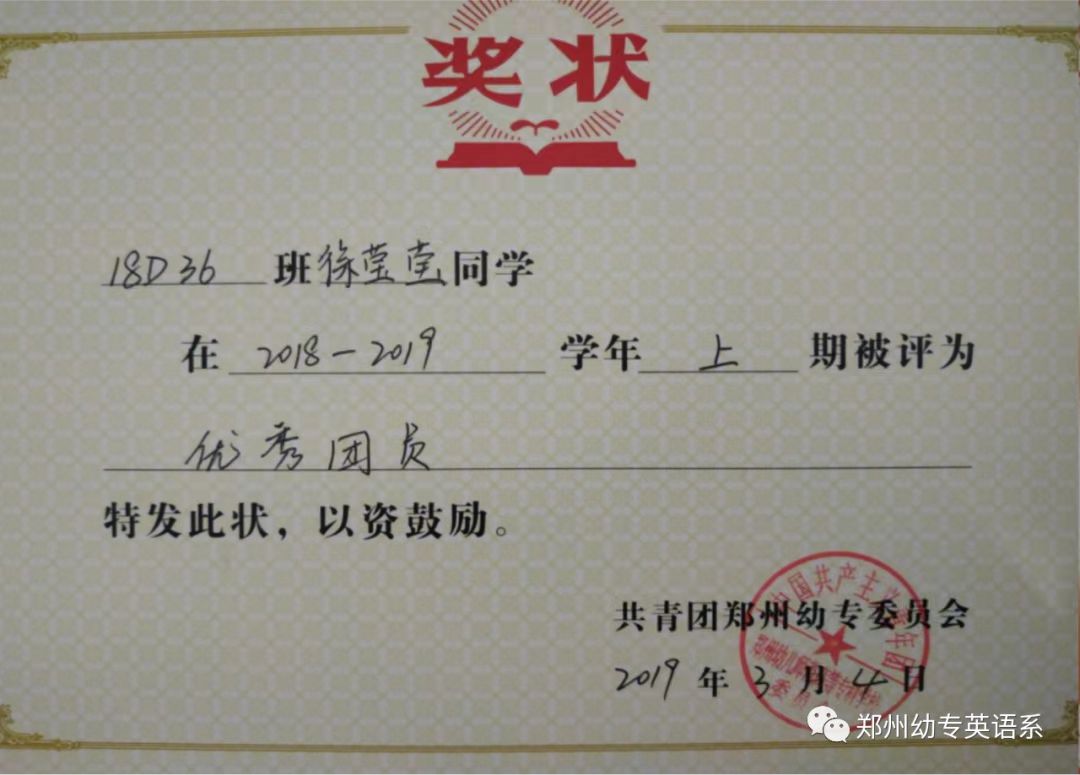 奖状
18D36 班徐莹莹同学
在 2018-2019 学年 上 期被评为
优秀团员
特发此状，以资鼓励。
共青团郑州幼专委员会
2019年3月4日
中国共产主义青年团
郑州幼专英语系